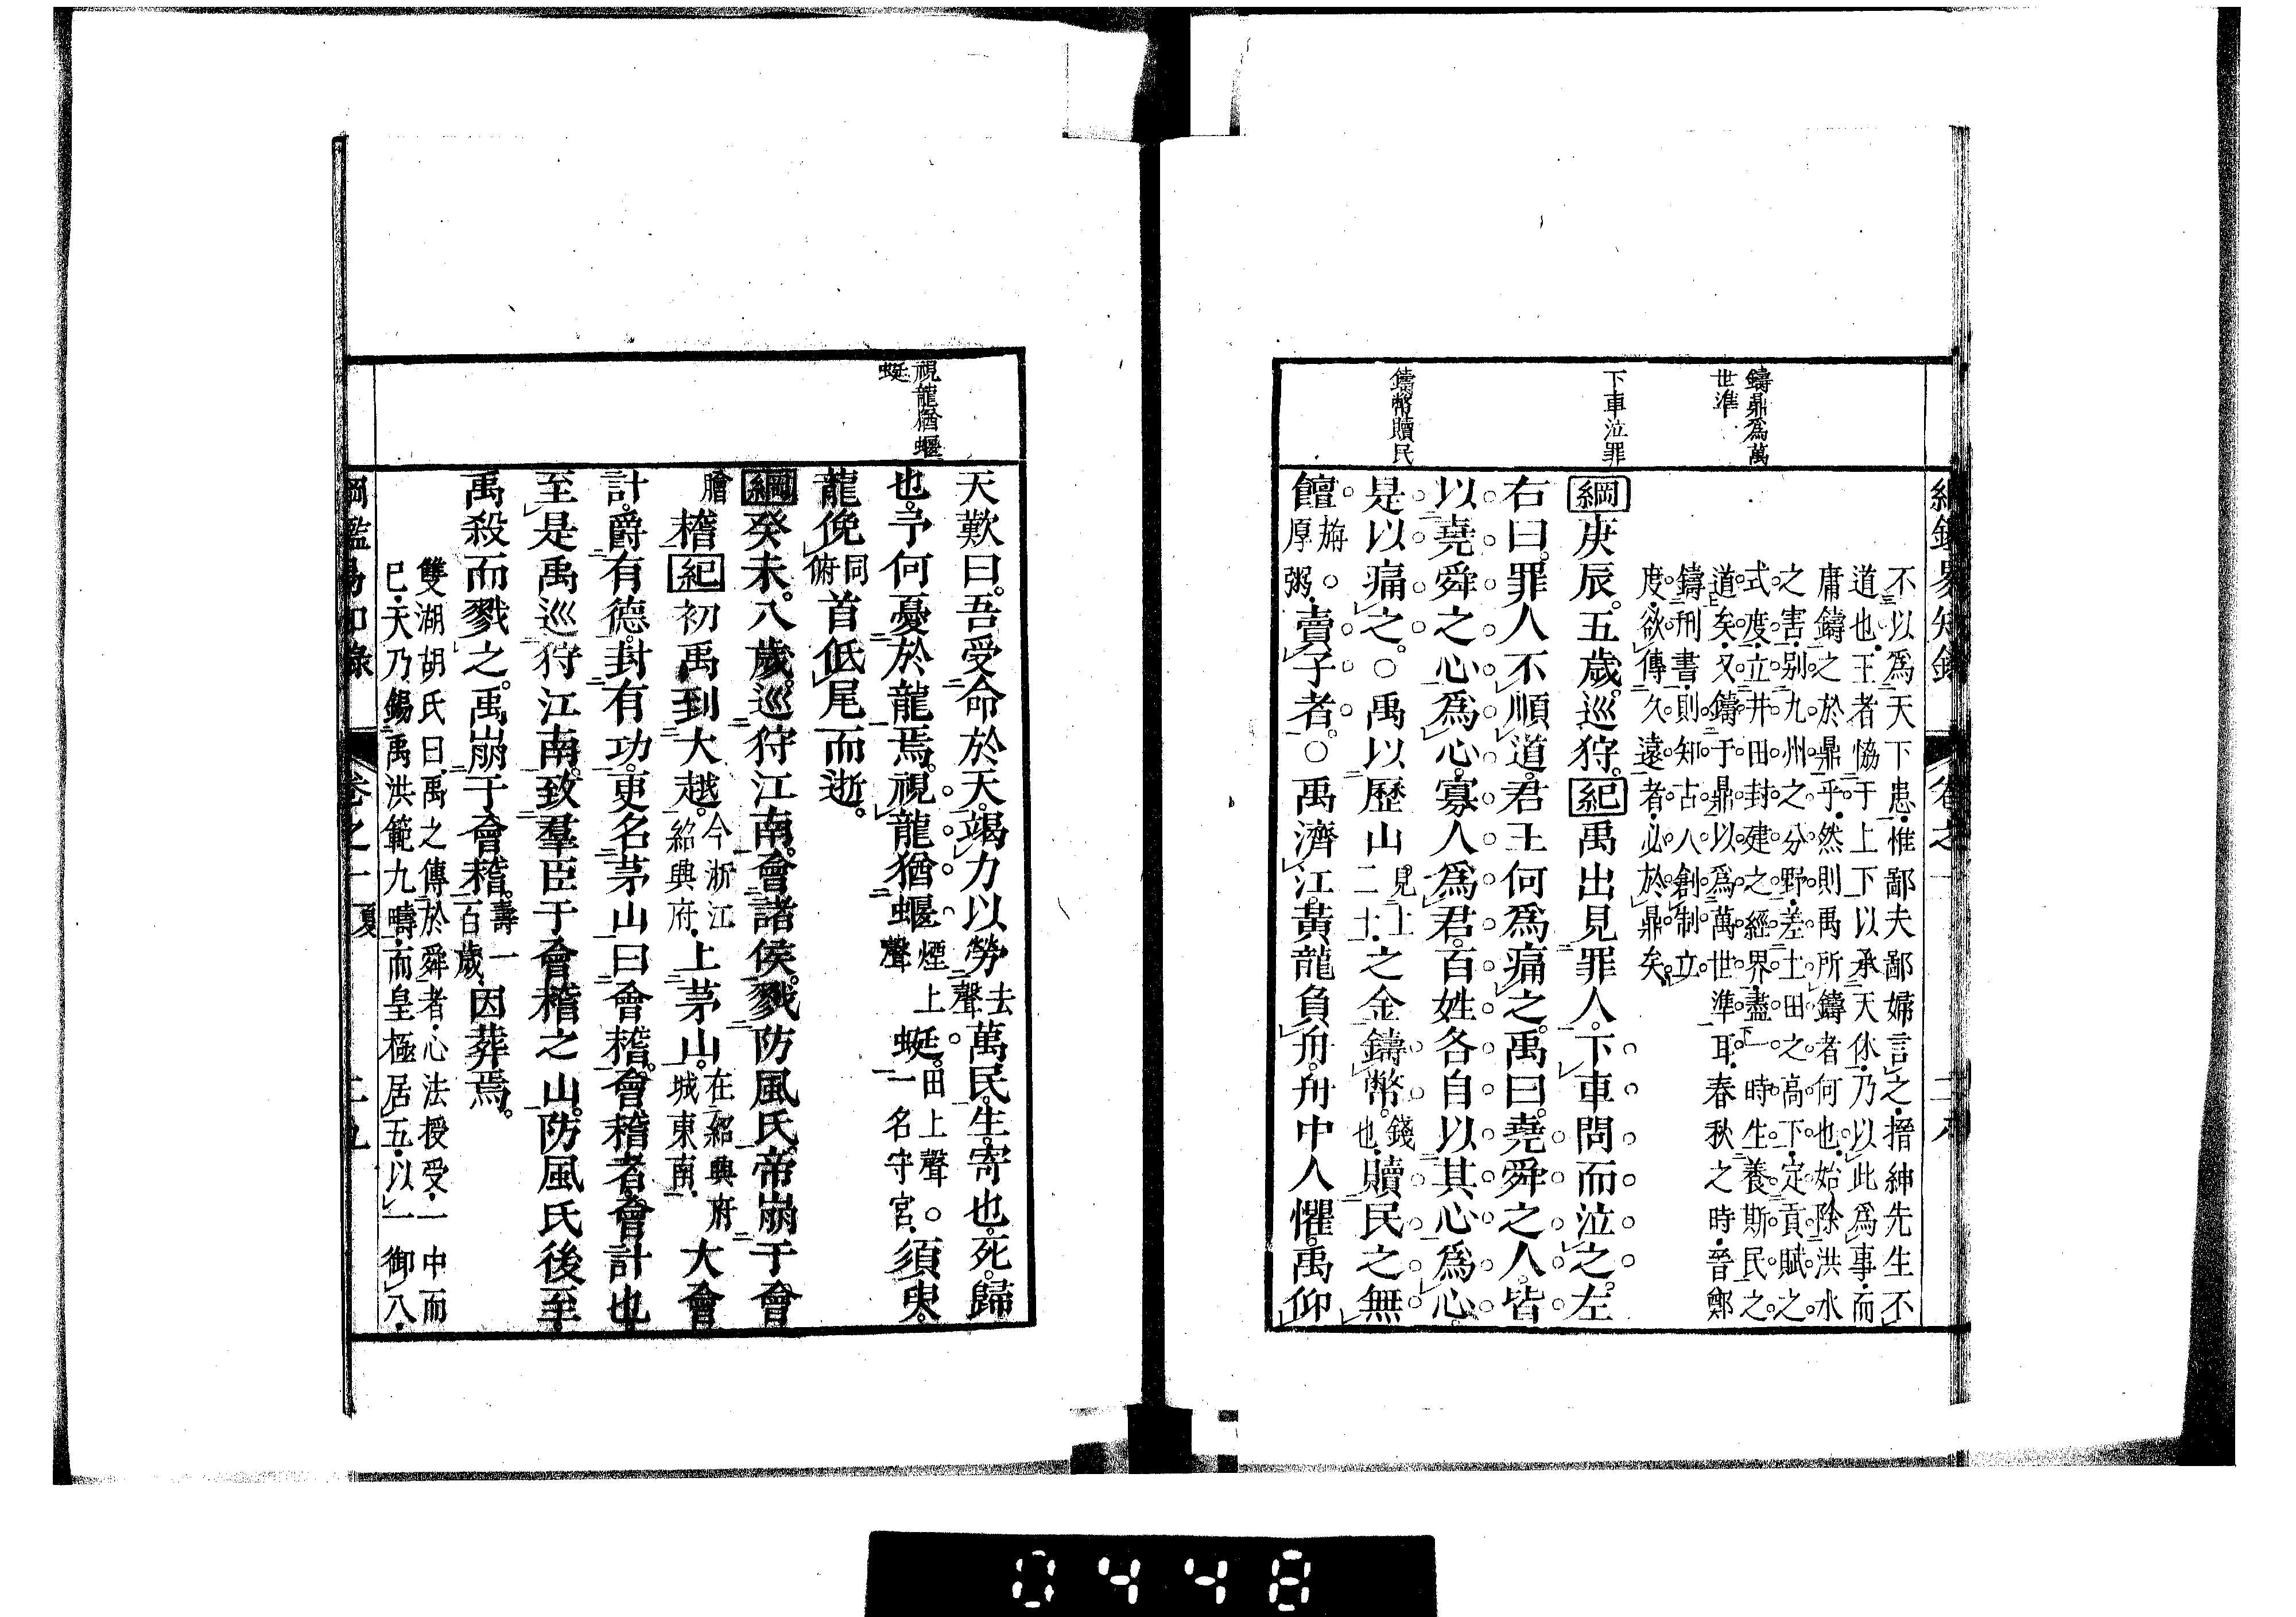 綱鑑易知錄 卷之一 二八
鑄鼎爲萬
世準
下車泣罪
鑄幣贖民
不以爲天下患惟鄙夫鄙婦言之搢紳先生不
道也王者恊于上下以承天休乃以此爲事而
庸鑄之於鼎乎然則禹所鑄者何也始除洪水
之害別九州之分野差土田之高下定貢賦之
式度立井田封建之經界盡一時生養斯民之
道矣又鑄于鼎以爲萬世準耳春秋之時晉鄭
鑄刑書則知古人創制立
度欲傳久遠者必於鼎矣
綱庚辰五歲巡狩紀禹出見罪人下車問而泣之左
右曰罪人不順道君王何爲痛之禹曰堯舜之人皆
以堯舜之心爲心寡人爲君百姓各自以其心爲心
是以痛之○禹以歷山見上二十之金鑄幣錢也贖民之無
饘旃○厚粥賣子者○禹濟江黃龍負舟舟中人懼禹仰
視龍猶蝘
蜓
天歎曰吾受命於天竭力以勞去聲萬民生寄也死歸
也予何憂於龍焉視龍猶蝘煙上聲蜓田上聲○一名守宮須臾
龍俛同俯首低尾而逝
綱癸未八歲巡狩江南會諸侯戮防風氏帝崩于會
膾稽紀初禹到大越今浙江紹興府上茅山在紹興府城東南大會
計爵有德封有功更名茅山曰會稽會稽者會計也
至是禹巡狩江南致羣臣于會稽之山防風氏後至
禹殺而戮之禹崩于會稽壽一百歲因葬焉
雙湖胡氏曰禹之傳於舜者心法授受一中而
已天乃錫禹洪範九疇而皇極居五以一御八
綱鑑易知錄 卷之一 夏 二九
0448